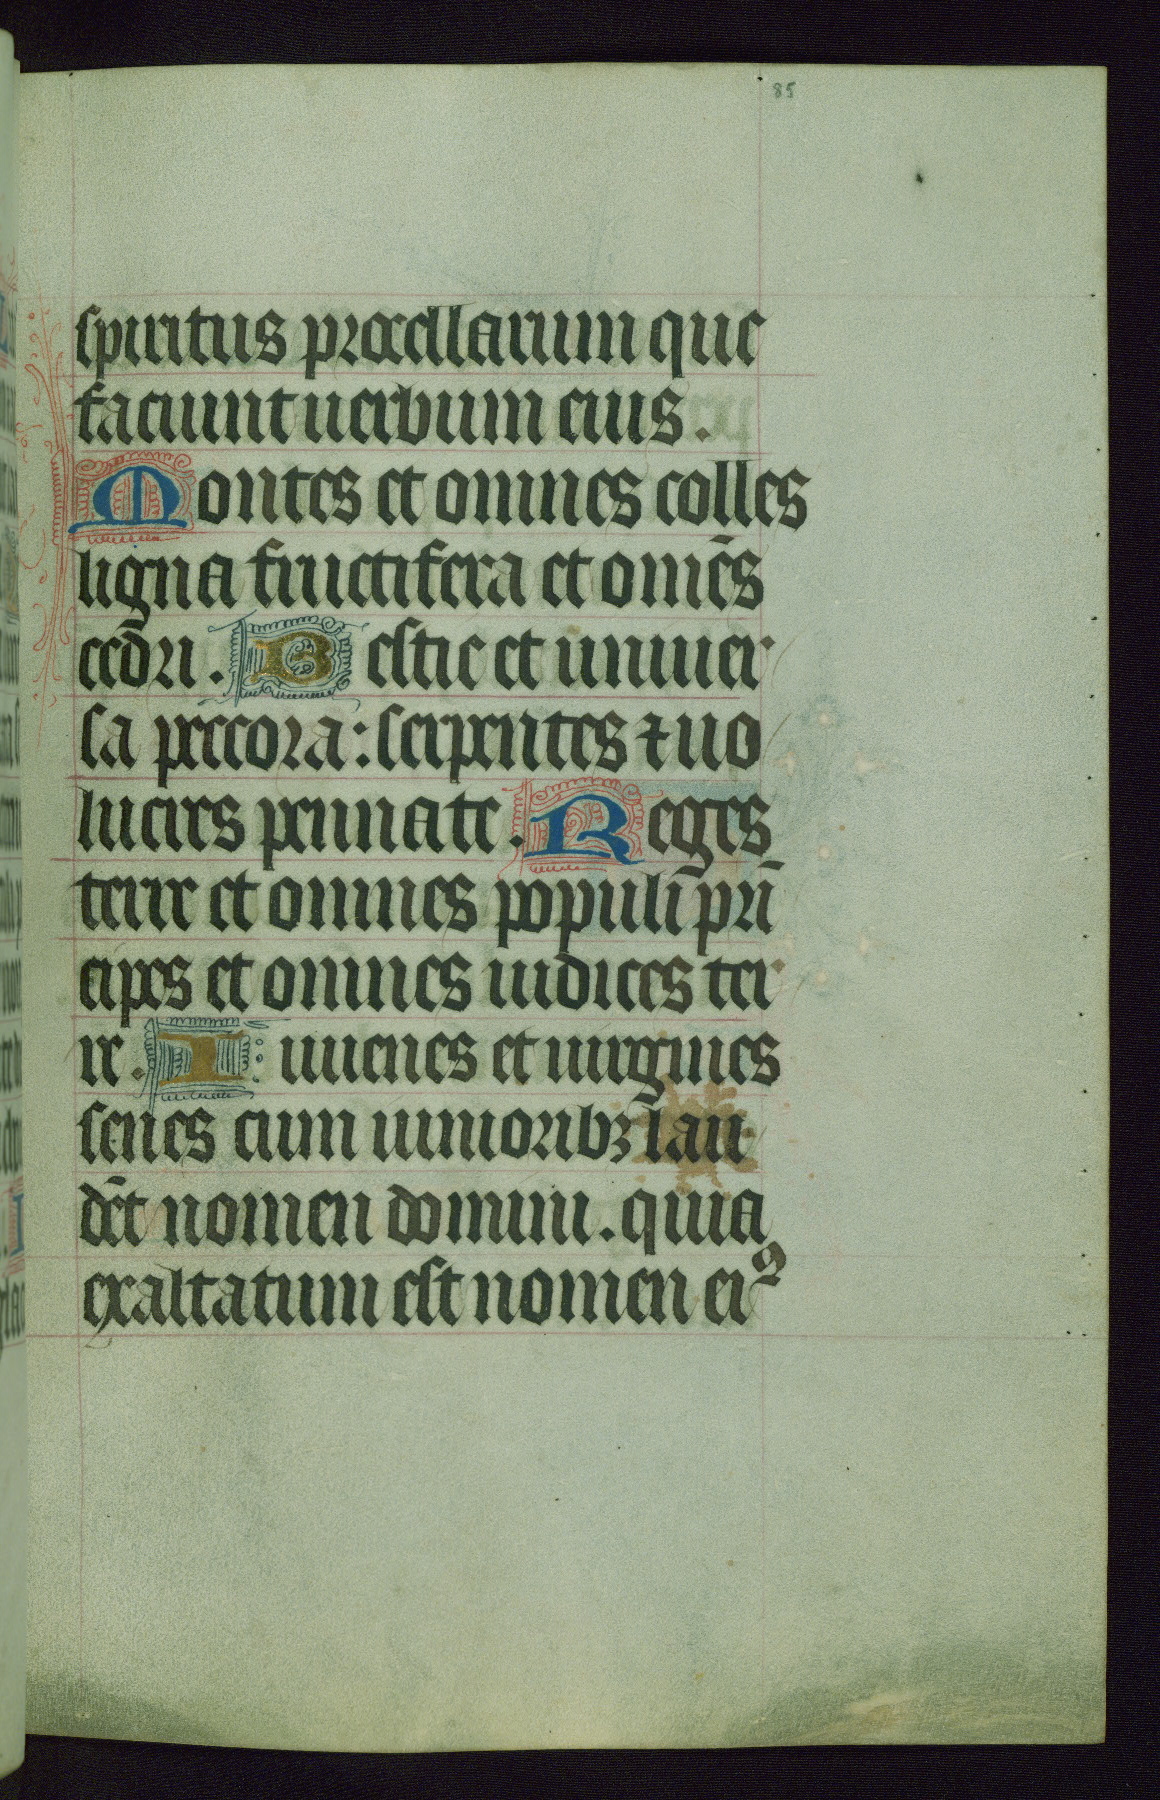 85
spiritus procellarum que
faciunt uerbum eius.
Montes et omnes colles
ligna fructifera et om̄es
cedri. Bestie et uniuer
sa peccora: serpentes ⁊ uo
lucres pennate. Reges
terre et omnes populi prī
cipes et omnes iudices ter
re. Iuuenes et uirgines
senes cum iunioribꝫ lau
dēt nomen domini. quia
exaltatum est nomen eiꝰ